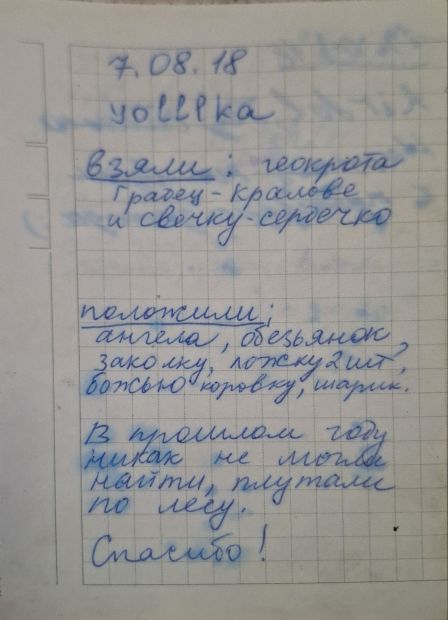 7.08.18
yolllka
взяли: геокрота
Градец-Кралове
и свечку-сердечко
положили:
ангела, обезьянок,
заколку, ложку 2 шт,
божью коровку, шарик.
В прошлом году
никак не могли
найти, плутали
по лесу.
Спасибо!